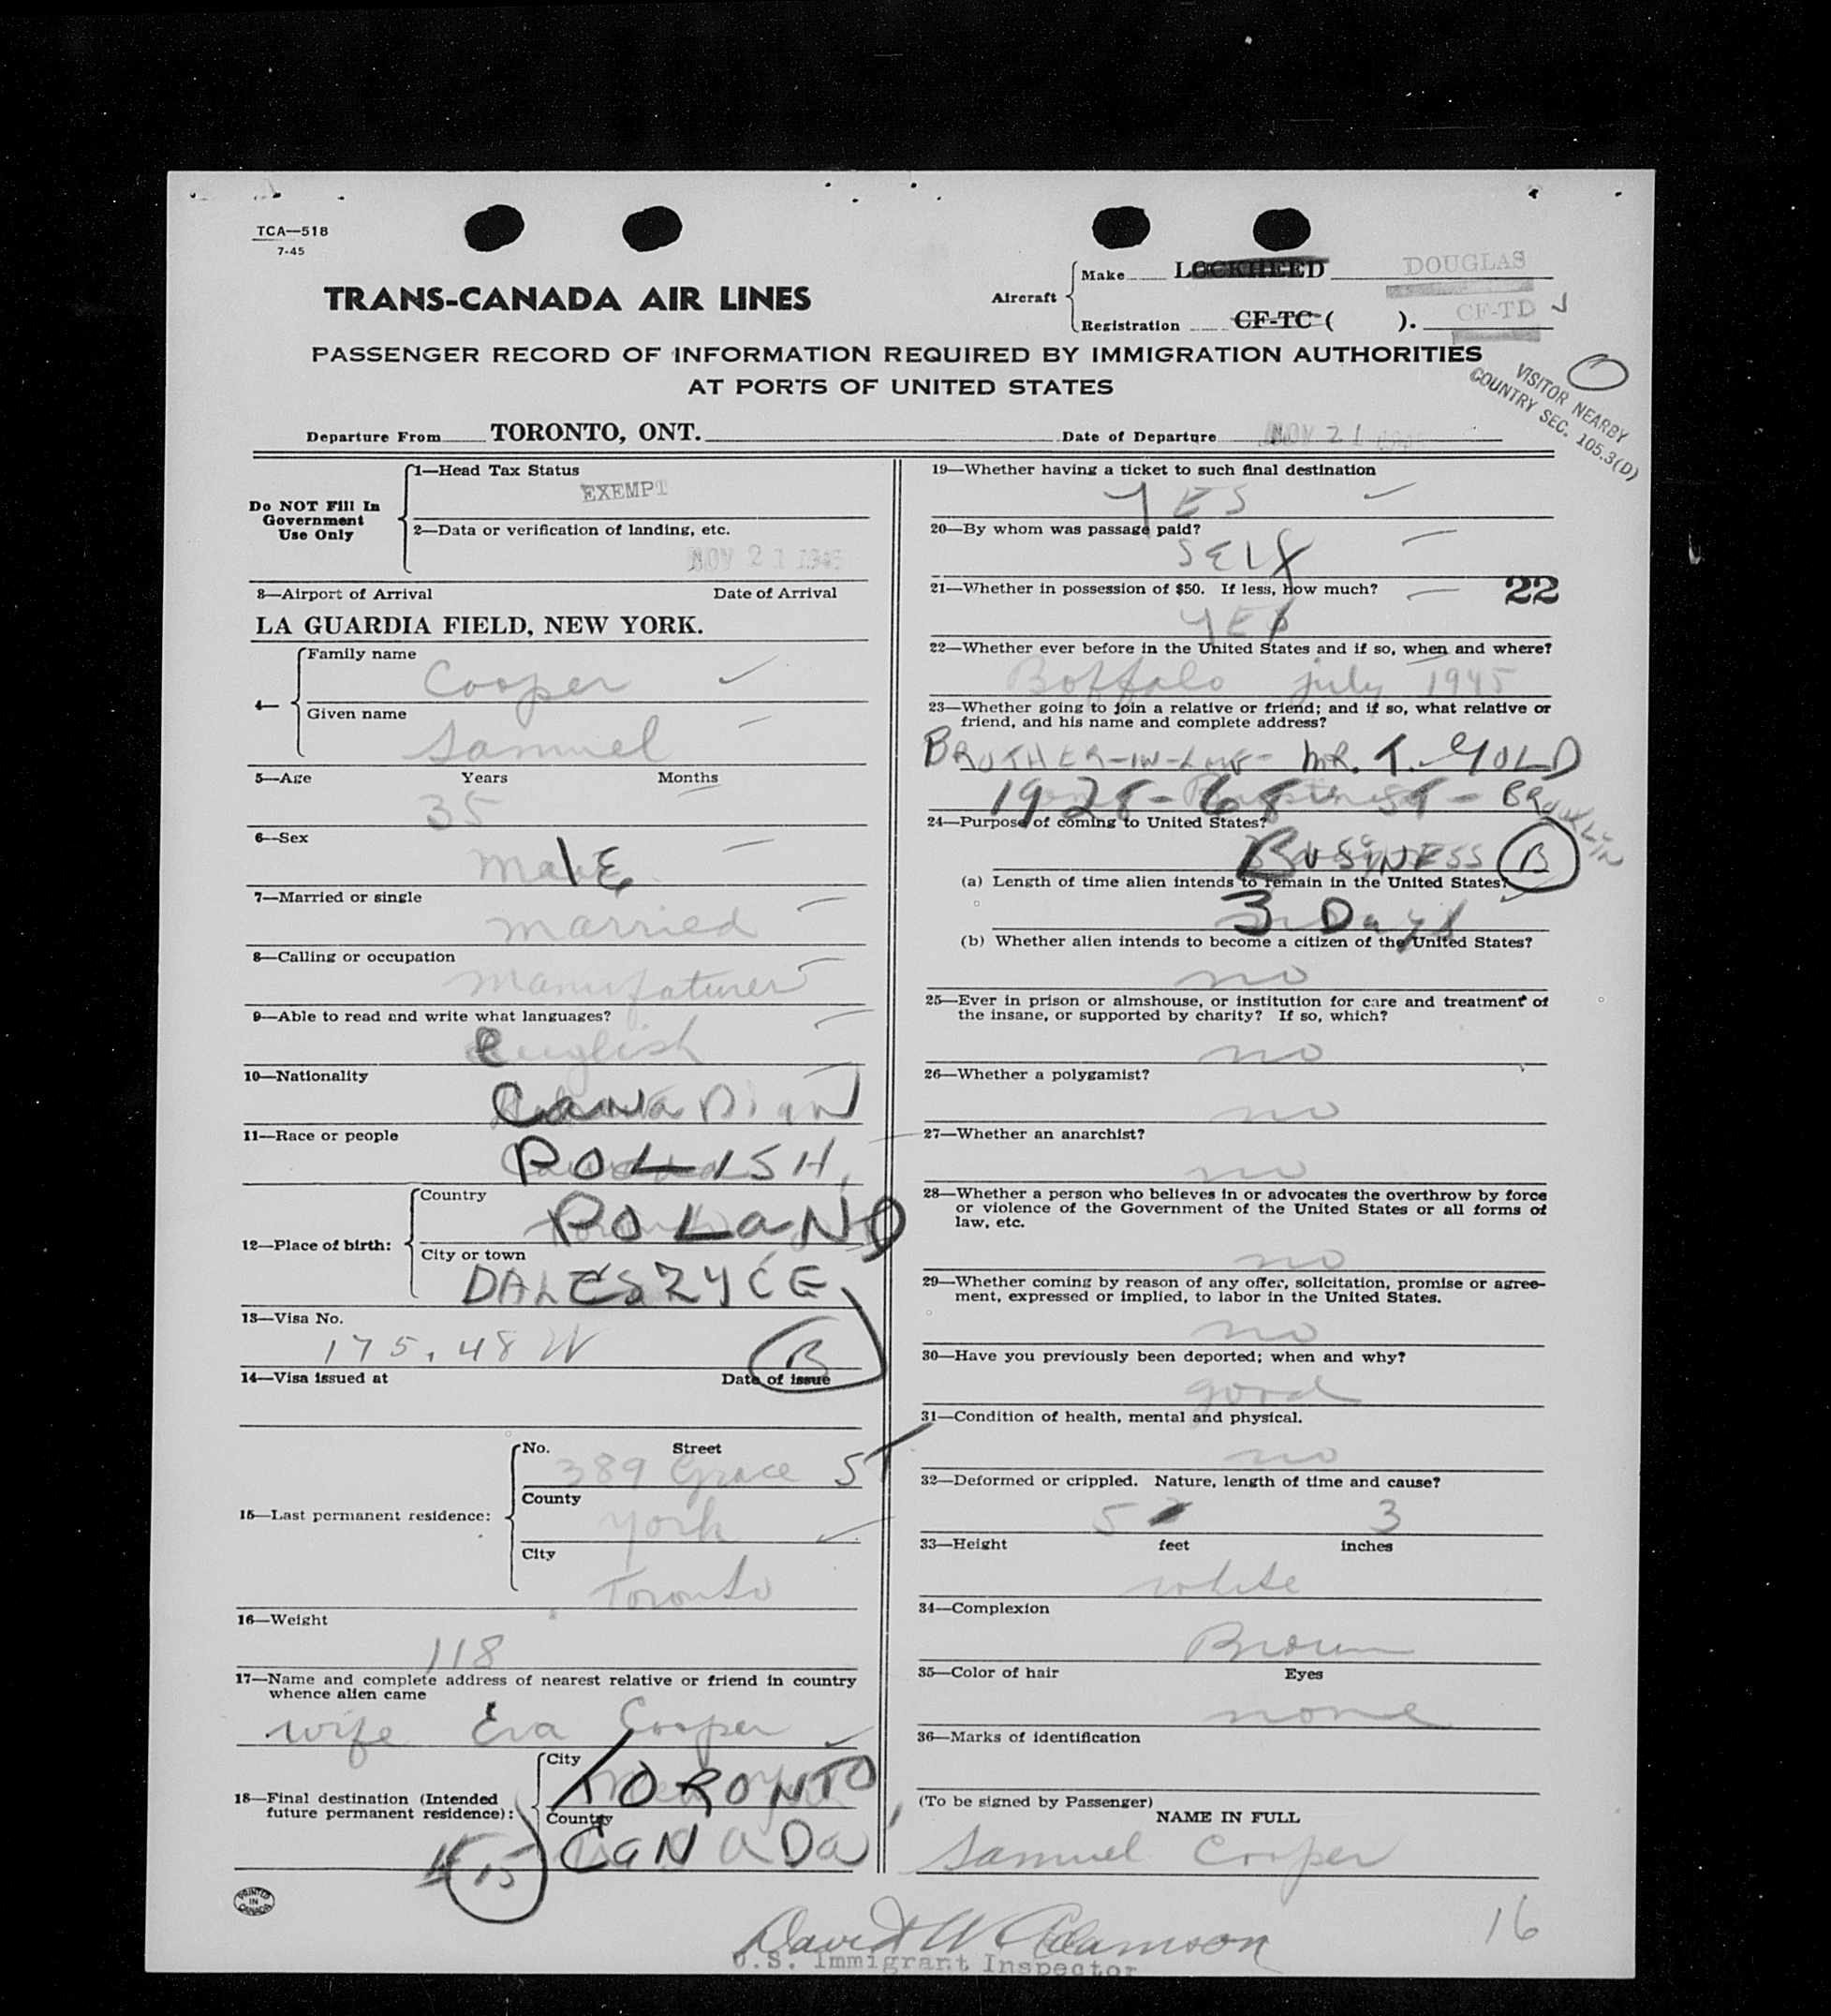 TCA—518
7-45
TRANS-CANADA AIR LINES
Aircraft
Make LOCKHEED DOUGLAS
Registration CF-TC ( ). CF-TD
PASSENGER RECORD OF INFORMATION REQUIRED BY IMMIGRATION AUTHORITIES
AT PORTS OF UNITED STATES
VISITOR NEARBY
COUNTRY SEC. 105.3(D)
Departure From TORONTO, ONT. Date of Departure NOV 21 1945
Do NOT Fill In
Government
Use Only
1—Head Tax Status
EXEMPT
2—Data or verification of landing, etc.
NOV 21 1945
3—Airport of Arrival Date of Arrival
LA GUARDIA FIELD, NEW YORK.
4—
Family name
Cooper
Given name
Samuel
5—Age Years Months
35
6—Sex
Male
7—Married or single
married
8—Calling or occupation
manufaturer
9—Able to read and write what languages?
English
10—Nationality
CANADIAN
11—Race or people
POLISH
12—Place of birth:
Country
POLAND
City or town
DALESZYCE
13—Visa No.
175.48 W
B
14—Visa issued at Date of issue
15—Last permanent residence:
No. Street
389 Grace ST
County
York
City
Toronto
16—Weight
118
17—Name and complete address of nearest relative or friend in country
whence alien came
wife Eva Cooper
18—Final destination (Intended
future permanent residence):
City
TORONTO
Country
CANADA
15
PRINTED
IN
CANADA
19—Whether having a ticket to such final destination
YES
20—By whom was passage paid?
SELF
21—Whether in possession of $50. If less, how much?
22
YES
22—Whether ever before in the United States and if so, when and where?
Boffalo july 1945
23—Whether going to join a relative or friend; and if so, what relative or
friend, and his name and complete address?
BROTHER-IN-LAW- MR. T. GOLD
1928-68 ST- BROOKLIN
24—Purpose of coming to United States?
BUSINESS B
(a) Length of time alien intends to remain in the United States?
3 Days
(b) Whether alien intends to become a citizen of the United States?
no
25—Ever in prison or almshouse, or institution for care and treatment of
the insane, or supported by charity? If so, which?
no
26—Whether a polygamist?
no
27—Whether an anarchist?
no
28—Whether a person who believes in or advocates the overthrow by force
or violence of the Government of the United States or all forms of
law, etc.
no
29—Whether coming by reason of any offer, solicitation, promise or agree-
ment, expressed or implied, to labor in the United States.
no
30—Have you previously been deported; when and why?
good
31—Condition of health, mental and physical.
no
32—Deformed or crippled. Nature, length of time and cause?
5 3
33—Height feet inches
white
34—Complexion
Brown
35—Color of hair Eyes
none
36—Marks of identification
(To be signed by Passenger)
NAME IN FULL
Samuel Cooper
16
David W Adamson
U.S. Immigrant Inspector